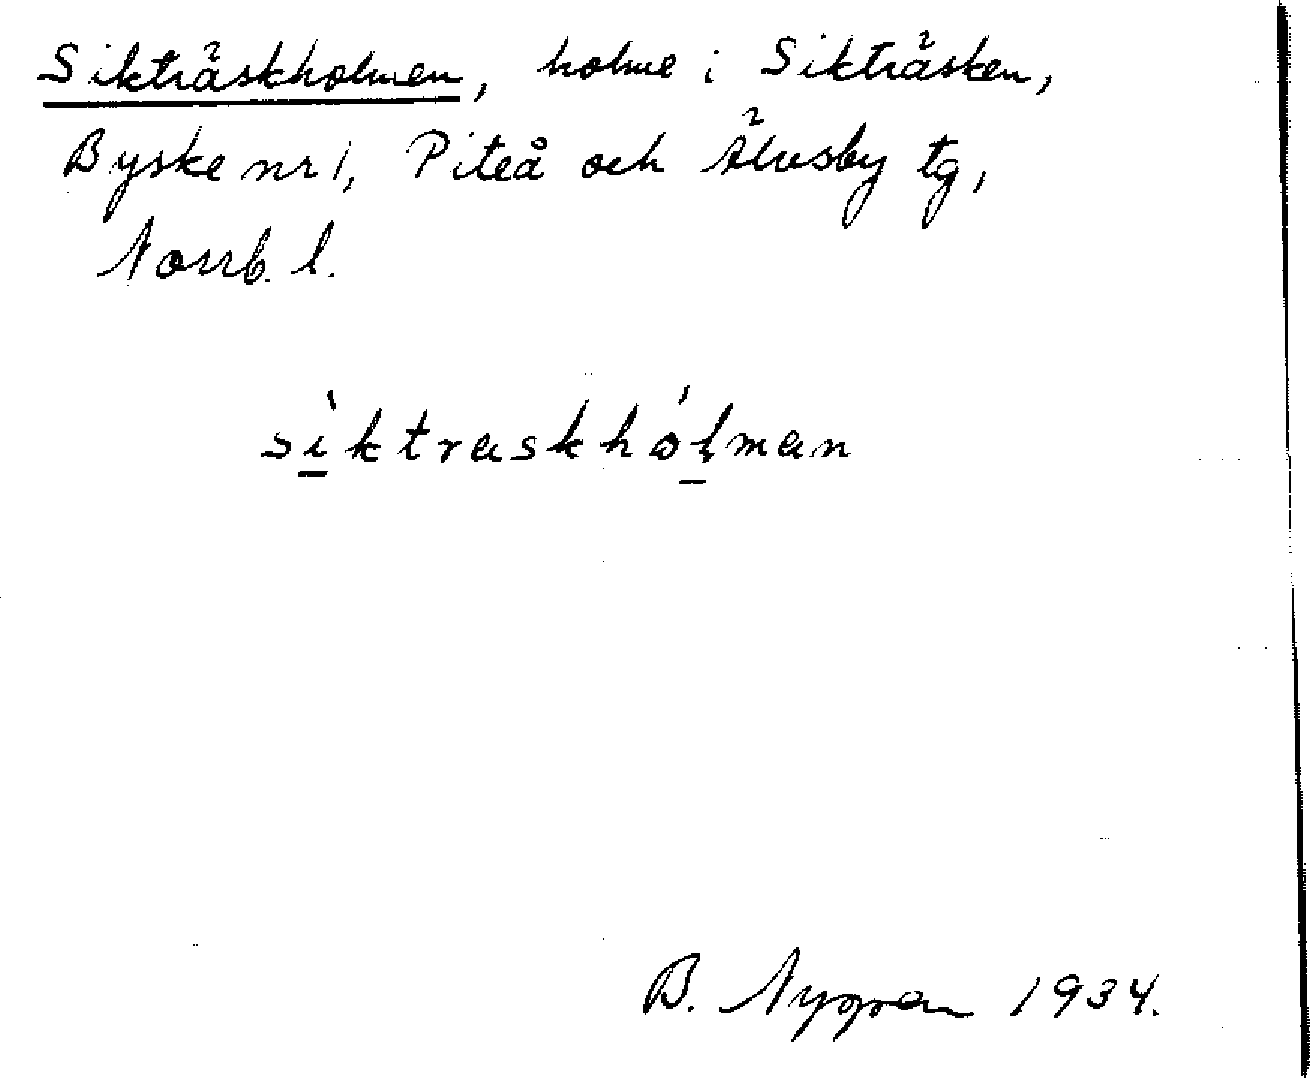 Sikträskholmen, holme i Sikträsken,
Byske nr 1, Piteå och Älvsby tg,
Norrb. l.
sìktraskhólman
B. Nygren 1934.